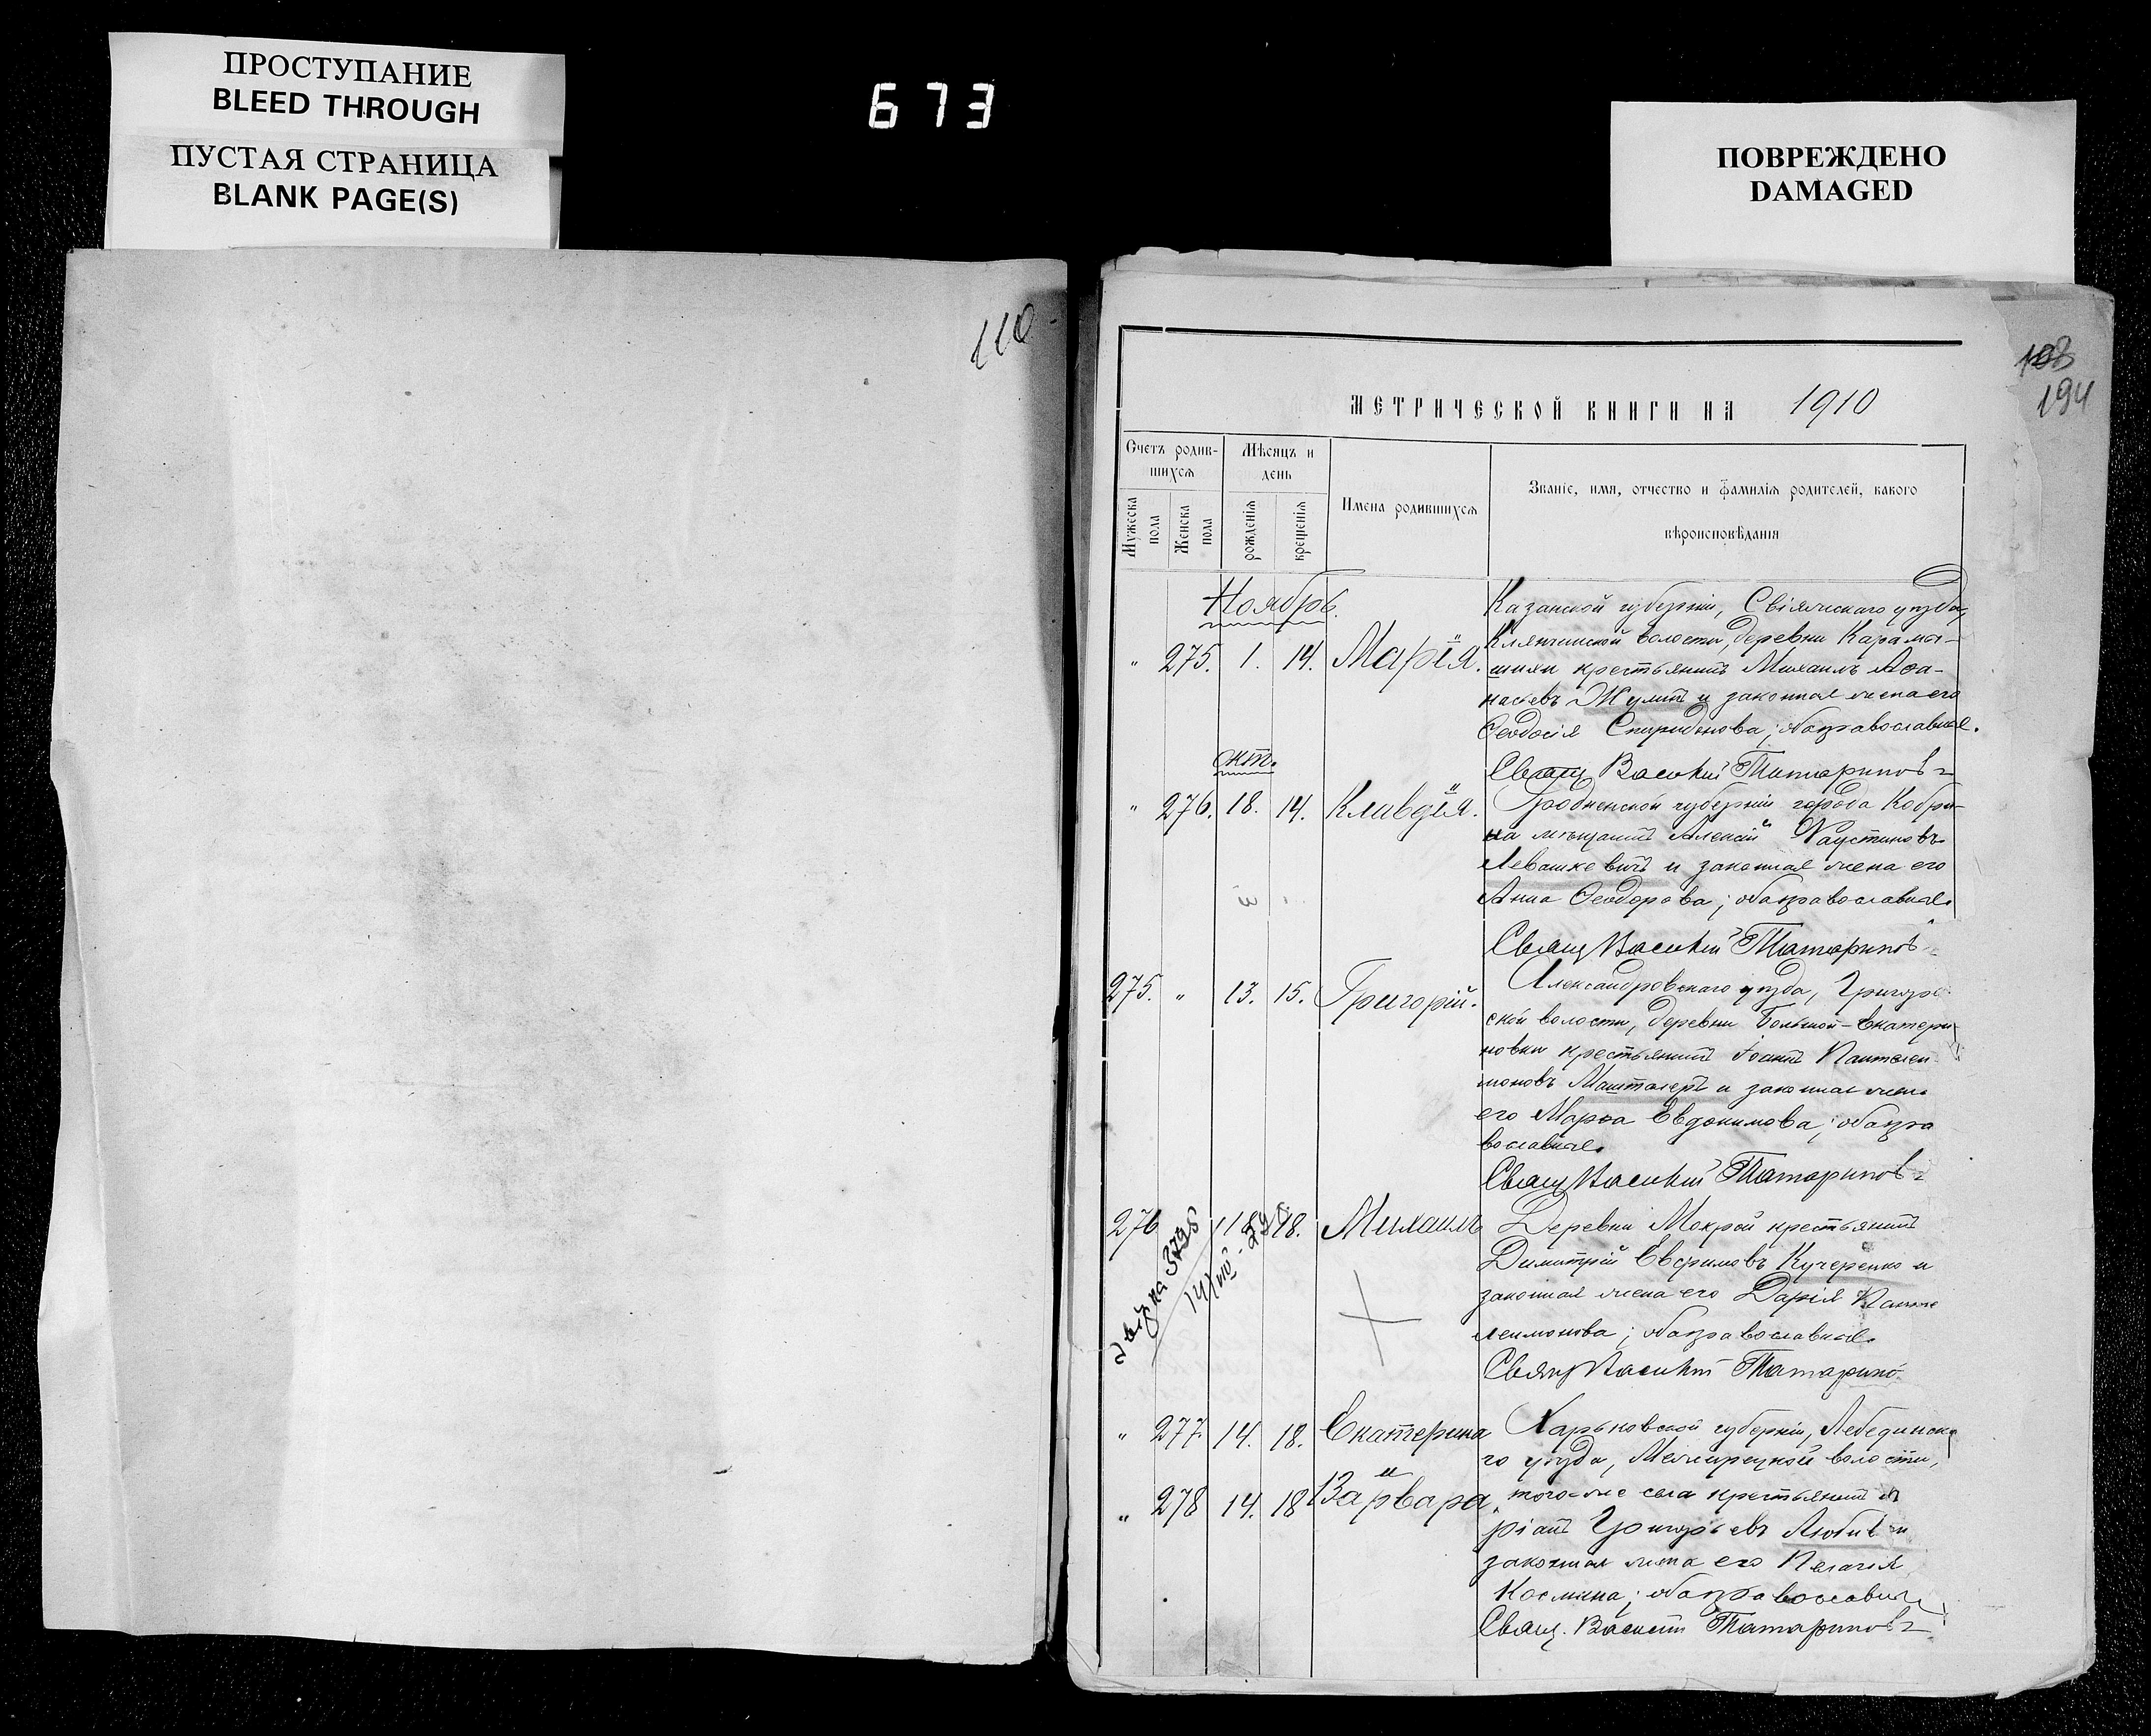 ПРОСТУПАНИЕ
BLEED THROUGH
ПУСТАЯ СТРАНИЦА
BLANK PAGE(S)
673
ПОВРЕЖДЕНО
DAMAGED
110
103
194
МЕТРИЧЕСКОЙ КНИГИ НА 1910
Счетъ родив-
шихся
Мѣсяцъ и
день
Мужеска
пола
Женска
пола
рожденія
крещенія
Имена родившихся
Званіе, имя, отчество и фамилія родителей, какого
вѣроисповѣданія
Ноябрь.
Казанской губерніи, Свіяжскаго уѣзда,
волости, деревни Карамы-
" 275. 1. 14. Марія.
шихи крестьянинъ Михаилъ Аѳа-
насьевъ и законная жена его
Ѳеодосія Спиридонова; оба православные.
окт.
Свящ Василій Татариновъ
" 276. 18. 14. Клавдія.
Гродненской губерніи города Кобри-
на мѣщанинъ Алексій Фаустиновъ
Левашкевичъ и законная жена его
Анна Ѳеодорова; оба православные.
Свящ Василій Татариновъ
275. " 13. 15. Григорій.
Александровскаго уѣзда,
ской волости, деревни Большой-Екатери-
новки крестьянинъ Іоаннъ Пантелеи-
моновъ Машталеръ и законная жена
его Марѳа Евдокимова; оба пра
вославные.
Свящ Василій Татариновъ
276 18. Михаилъ
Деревни Мокрой крестьянинъ
Димитрій Евѳимовъ Кучеренко и
законная жена его Дарія Панте
леимонова; оба православные.
Свящ Василій Татаринов
" 277. 14. 18. Екатерина
Харьковской губерніи, Лебединска
го уѣзда, волости,
и
" 278 14. 18 Варвара.
того-же села крестьянинъ
Григорьевъ и
законная жена его Пелагія
Космина; оба православные
Свящ. Василій Татариновъ